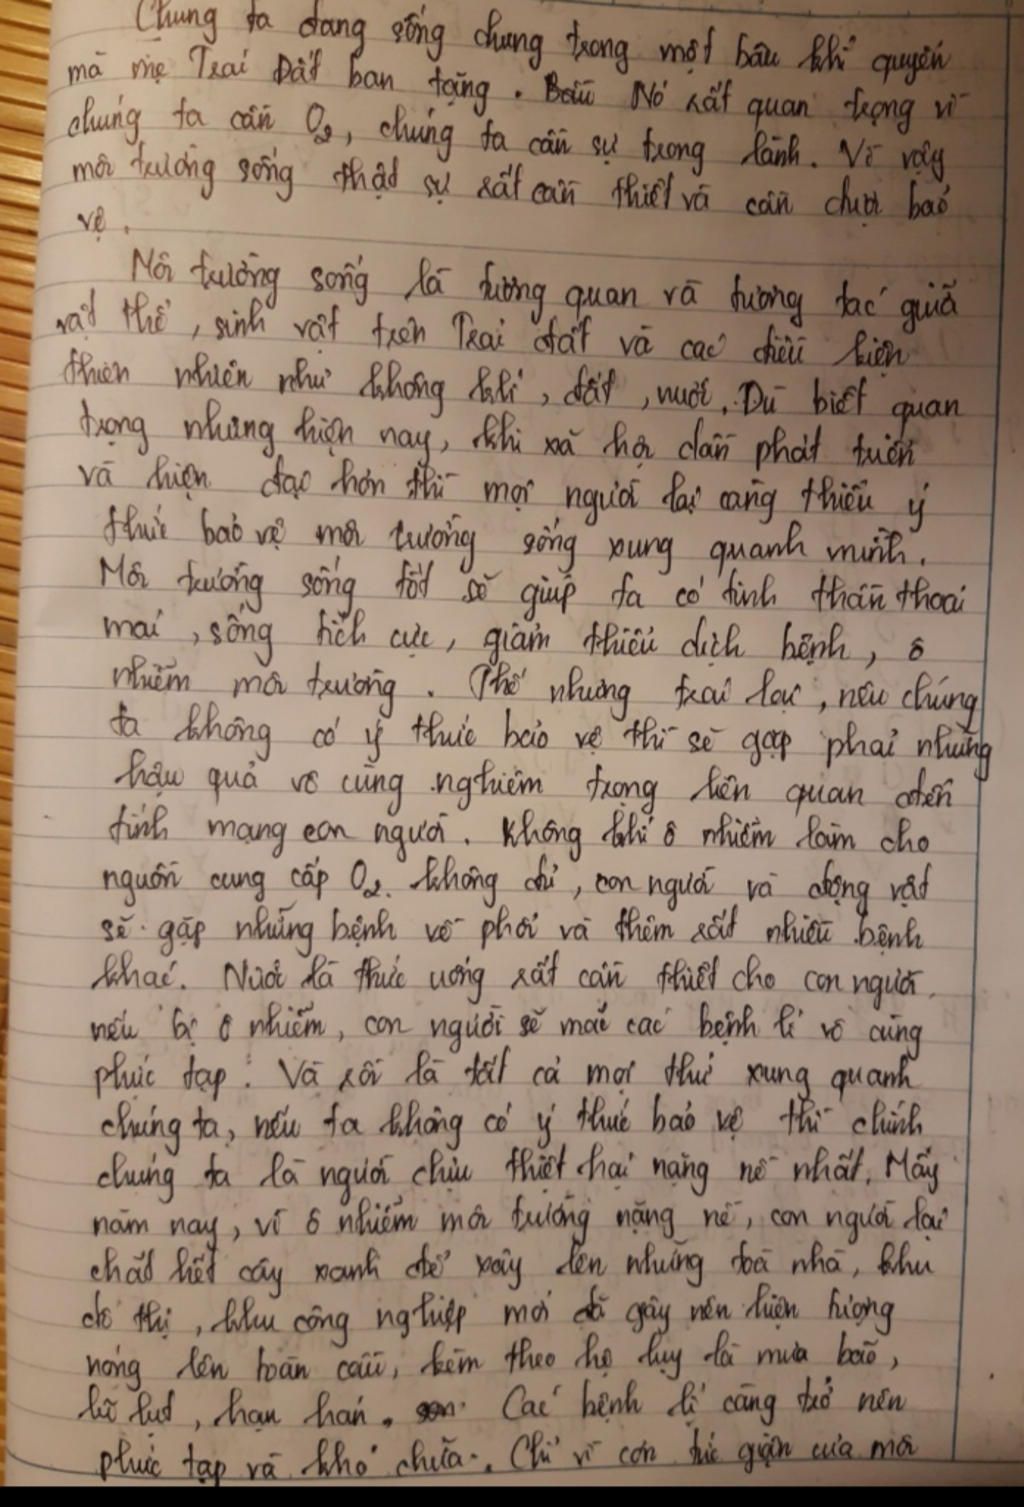 Chúng ta đang sống chung trong một bầu khí quyển
mà mẹ Trái Đất ban tặng. Nó rất quan trọng vì
chúng ta cần O2, chúng ta cần sự trong lành. Vì vậy
môi trường sống thật sự rất cần thiết và cần được bảo
vệ.
Môi trường sống là tương quan và tương tác giữa
vật thể, sinh vật trên Trái đất và các điều kiện
thiên nhiên như không khí, đất, nước. Dù biết quan
trọng nhưng hiện nay, khi xã hội dần phát triển
và hiện đại hơn thì mọi người lại càng thiếu ý
thức bảo vệ môi trường sống xung quanh mình.
Môi trường sống tốt sẽ giúp ta có tinh thần thoải
mái, sống tích cực, giảm thiểu dịch bệnh, ô
nhiễm môi trường. Thế nhưng trái lại, nếu chúng
ta không có ý thức bảo vệ thì sẽ gặp phải những
hậu quả vô cùng nghiêm trọng liên quan đến
tính mạng con người. Không khí ô nhiễm làm cho
nguồn cung cấp O2 không đủ, con người và động vật
sẽ gặp những bệnh về phổi và thêm rất nhiều bệnh
khác. Nước là thức uống rất cần thiết cho con người,
nếu bị ô nhiễm, con người sẽ mắc các bệnh lí vô cùng
phức tạp. Và rồi là tất cả mọi thứ xung quanh
chúng ta, nếu ta không có ý thức bảo vệ thì chính
chúng ta là người chịu thiệt hại nặng nề nhất. Mấy
năm nay, vì ô nhiễm môi trường nặng nề, con người lại
chặt hết cây xanh để xây lên những toà nhà, khu
đô thị, khu công nghiệp mới đã gây nên hiện tượng
nóng lên toàn cầu, kèm theo hệ lụy là mưa bão,
lũ lụt, hạn hán. Các bệnh lí càng trở nên
phức tạp và khó chữa. Chỉ vì cơn tức giận của môi